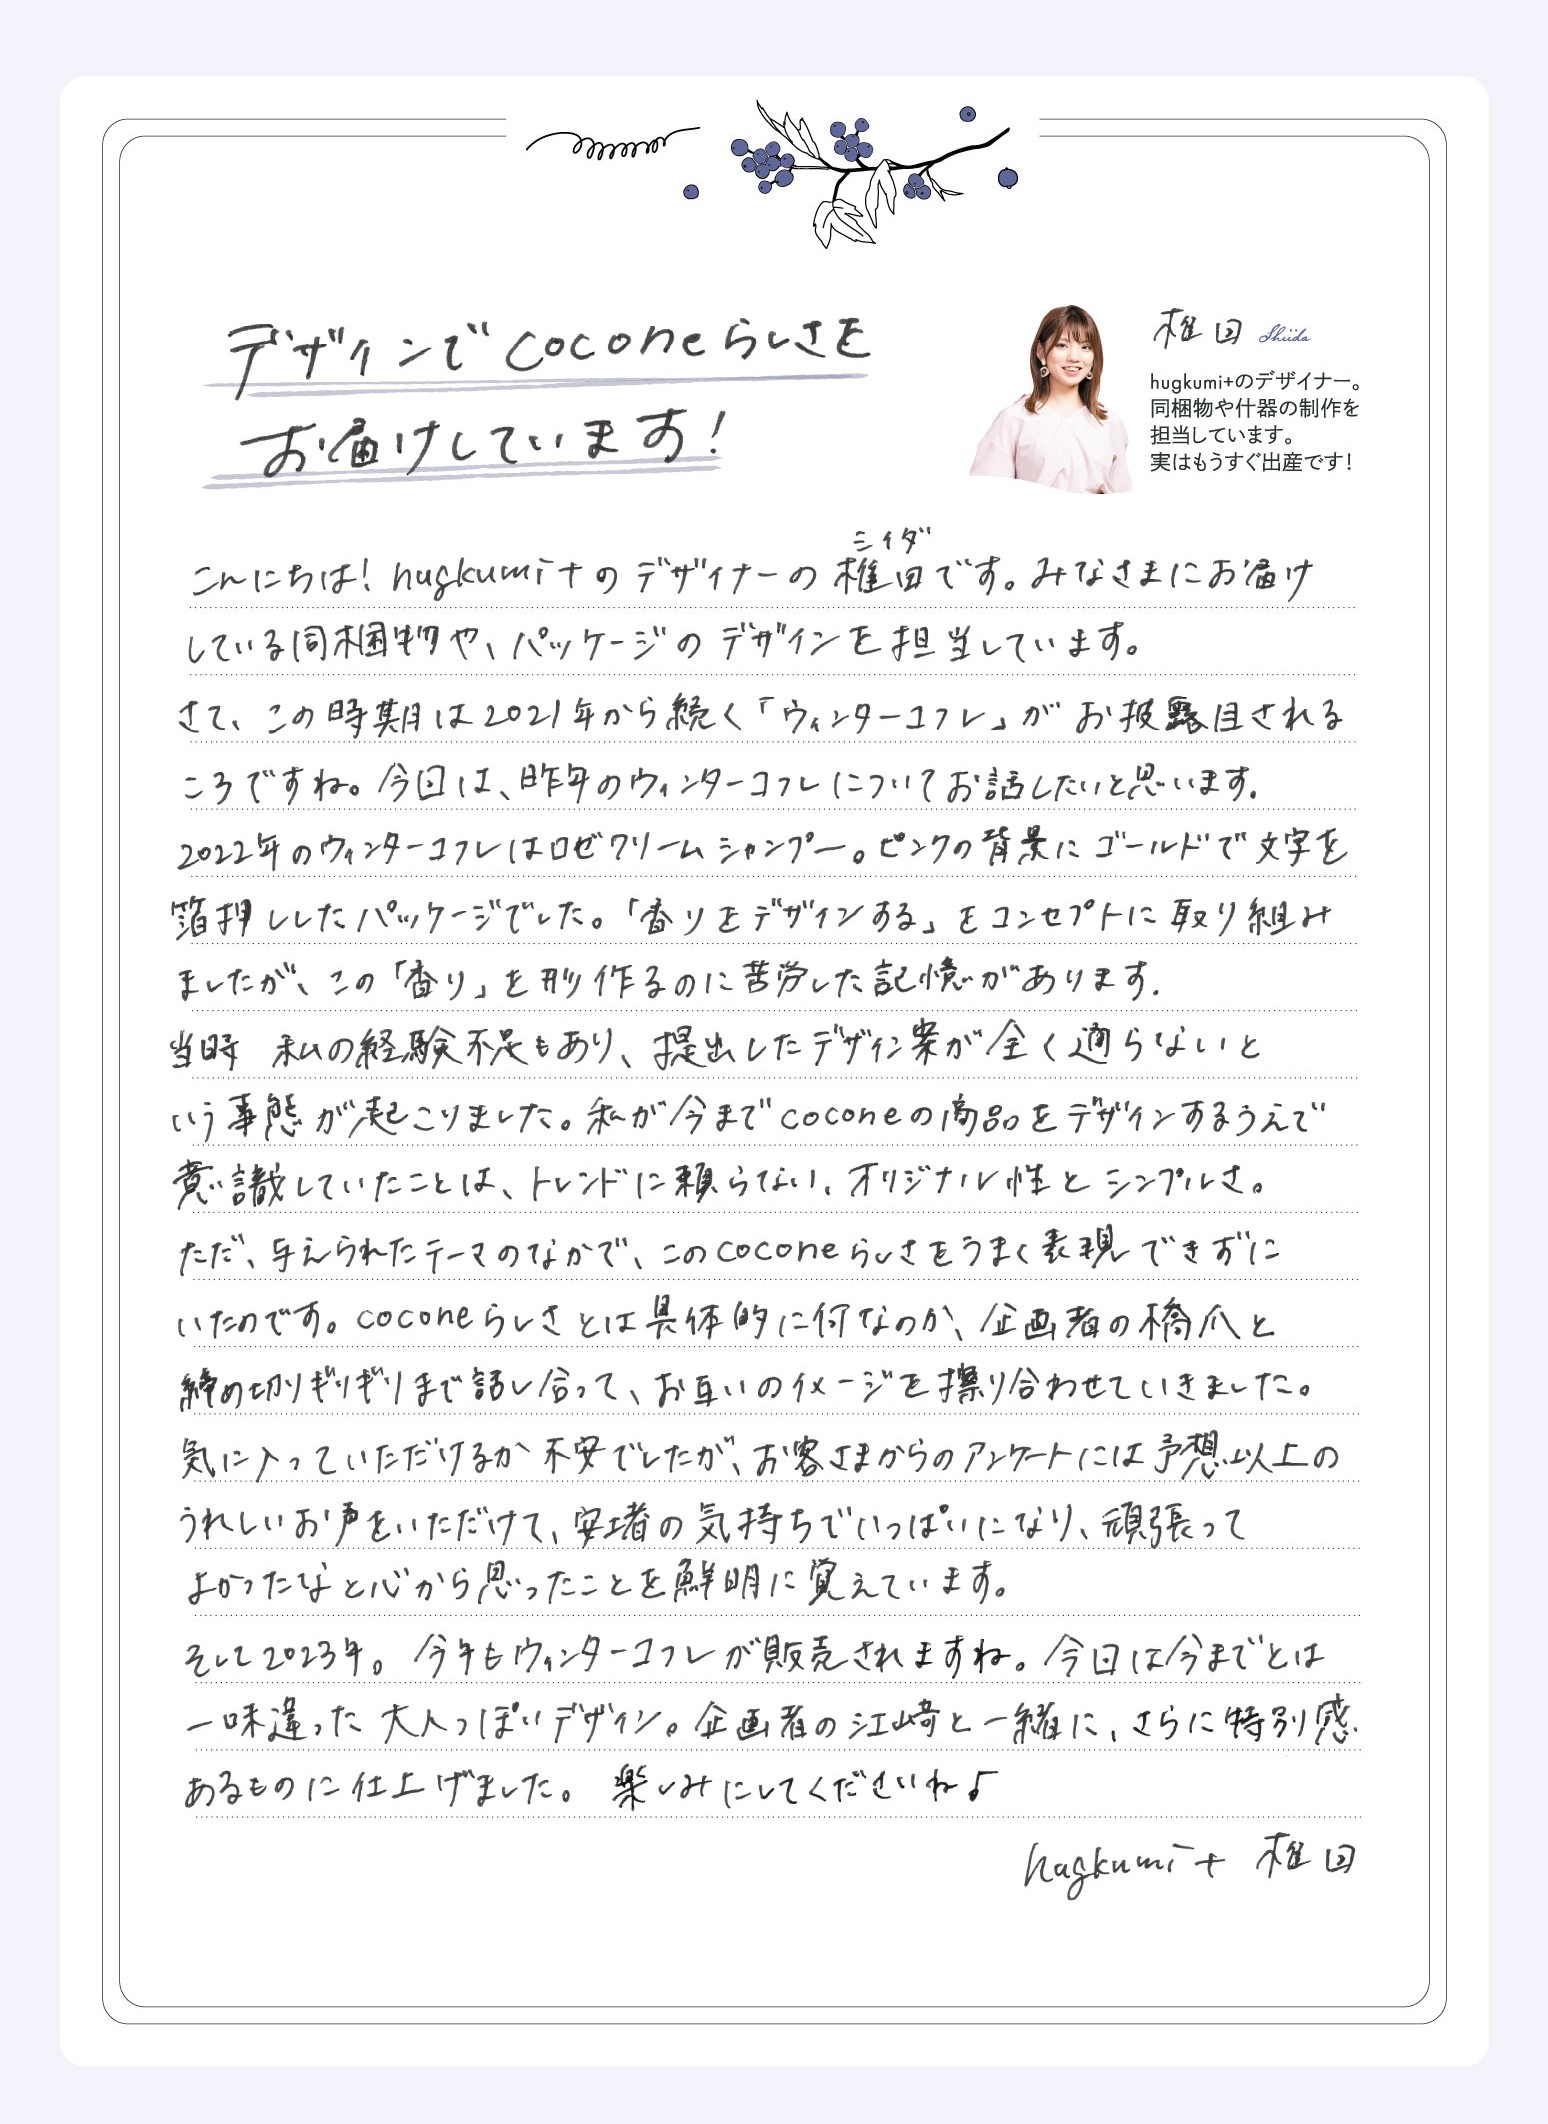 デザインでcoconeらしさを
お届けしています！
椎田 Shiida
hugkumi+のデザイナー。
同梱物や什器の制作を
担当しています。
実はもうすぐ出産です！
シイダ
こんにちは！hugkumi+のデザイナーの椎田です。みなさまにお届け
している同梱物や、パッケージのデザインを担当しています。
さて、この時期は2021年から続く「ウィンターコフレ」がお披露目される
ころですね。今回は、昨年のウィンターコフレについてお話したいと思います。
2022年のウィンターコフレはロゼクリームシャンプー。ピンクの背景にゴールドで文字を
箔押ししたパッケージでした。「香りをデザインする」をコンセプトに取り組み
ましたが、この「香り」を形作るのに苦労した記憶があります。
当時 私の経験不足もあり、提出したデザイン案が全く通らないと
いう事態が起こりました。私が今までcoconeの商品をデザインするうえで
意識していたことは、トレンドに頼らない、オリジナル性とシンプルさ。
ただ、与えられたテーマのなかで、このcoconeらしさをうまく表現できずに
いたのです。coconeらしさとは具体的に何なのか、企画者の橋爪と
締め切りギリギリまで話し合って、お互いのイメージを擦り合わせていきました。
気に入っていただけるか不安でしたが、お客さまからのアンケートには予想以上の
うれしいお声をいただけて、安堵の気持ちでいっぱいになり、頑張って
よかったなと心から思ったことを鮮明に覚えています。
そして2023年。今年もウィンターコフレが販売されますね。今日は今までとは
一味違った大人っぽいデザイン。企画者の江崎と一緒に、さらに特別感
あるものに仕上げました。 楽しみにしてくださいね♪
hugkumi+ 椎田